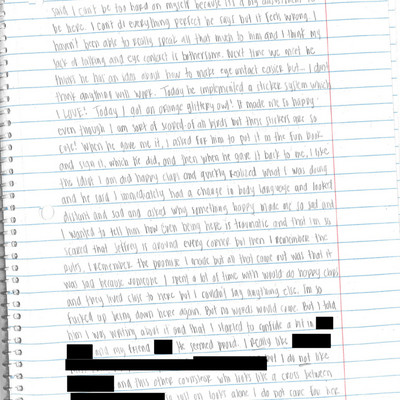 said I can't be too hard on myself because it's a big adjustment to
be here. I can't do everything perfect he says but it feels wrong. I
haven't been able to really speak all that much to him and I think my
lack of talking and eye contact is bothersome. Next time we meet he
thinks he has an idea about how to make eye contact easier but... I don't
think anything will work. Today he implemented a sticker system which
I LOVE! Today I got an orange glittery owl! It made me so happy
even though I am sort of scared of all birds but these stickers are so
cute! When he gave me it, I asked for him to put it on the fun book
and sign it, which he did, and then when he gave it back to me, I like
the idiot I am did happy claps and quickly realized what I was doing
and he said I immediately had a change in body language and looked
distant and sad and asked why something happy made me so sad and
I wanted to tell him how even being here is traumatic and that I'm so
scared that Jeffrey is around every corner but then I remember the
rules. I remember the promise I made but all that came out was that it
was sad because someone I spent a lot of time with would do happy claps
and they lived close to here but I couldn't say anything else. I'm so
fucked up being down here again. But no words would come. But I told
him I was writing about it and that I started to confide a bit in
and my friend He seemed proud. I really like
but I do not like
and this other counselor who looks like a cross between
on looks alone I do not care for here